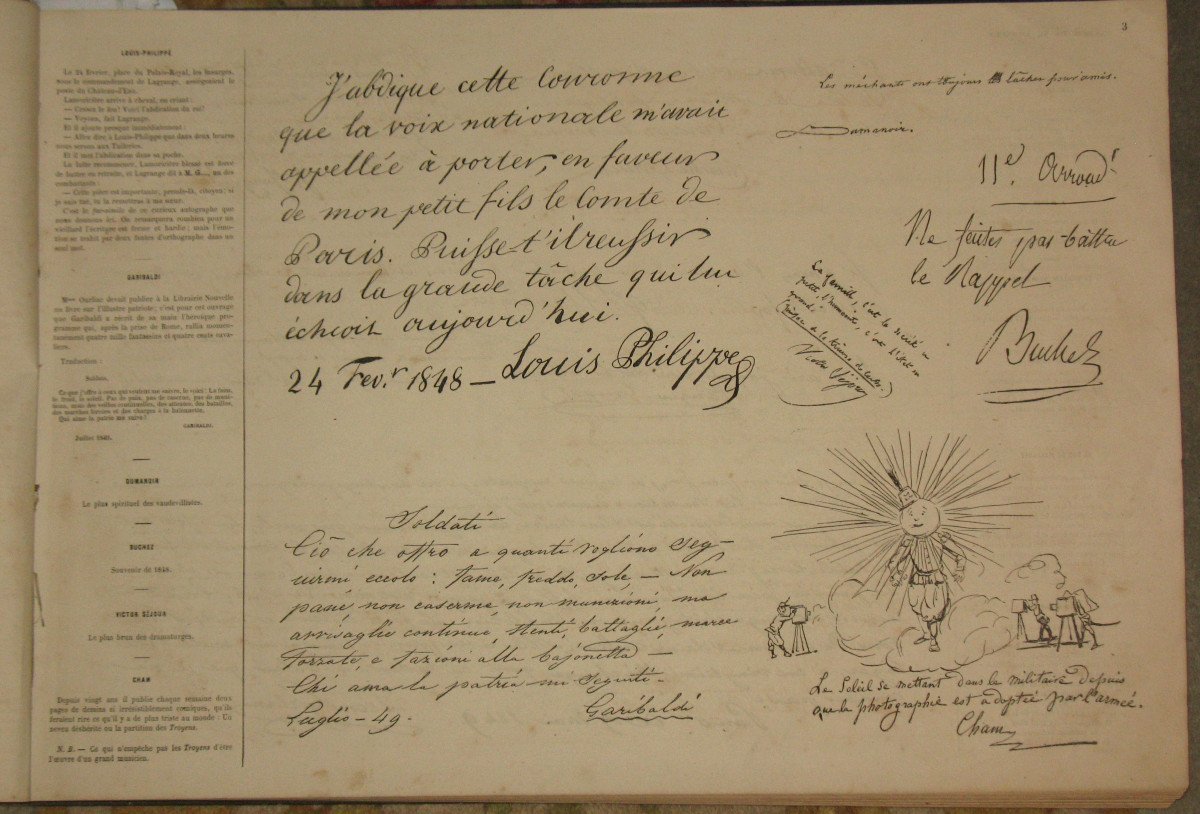 3
LOUIS-PHILIPPE
Le 24 février, place du Palais-Royal, les insurgés,
sous le commandement de Lagrange, assiégeaient le
poste du Château-d'Eau.
Lamoricière arrive à cheval, en criant :
— Cessez le feu! Voici l'abdication du roi!
— Voyons, fait Lagrange.
Et il ajoute presque immédiatement :
— Allez dire à Louis-Philippe que dans deux heures
nous serons aux Tuileries.
Et il met l'abdication dans sa poche.
La lutte recommence, Lamoricière blessé est forcé
de battre en retraite, et Lagrange dit à M. G..., un des
combattants :
— Cette pièce est importante, prends-la, citoyen; si
je suis tué, tu la remettras à ma sœur.
C'est le fac-simile de ce curieux autographe que
nous donnons ici. On remarquera combien pour un
vieillard l'écriture est ferme et hardie; mais l'émo-
tion se trahit par deux fautes d'orthographe dans un
seul mot.
GARIBALDI
Mme Ourliac devait publier à la Librairie Nouvelle
un livre sur l'illustre patriote; c'est pour cet ouvrage
que Garibaldi a récrit de sa main l'héroïque pro-
gramme qui, après la prise de Rome, rallia momen-
tanément quatre mille fantassins et quatre cents cava-
liers.
Traduction :
Soldats,
Ce que j'offre à ceux qui veulent me suivre, le voici : La faim,
le froid, le soleil. Pas de pain, pas de casernes, pas de muni-
tions, mais des veilles continuelles, des attentes, des batailles,
des marches forcées et des charges à la baïonnette.
Qui aime la patrie me suive!
GARIBALDI.
Juillet 1849.
DUMANOIR
Le plus spirituel des vaudevillistes.
BUCHEZ
Souvenir de 1848.
VICTOR SÉJOUR
Le plus brun des dramaturges.
CHAM
Depuis vingt ans il publie chaque semaine deux
pages de dessins si irrésistiblement comiques, qu'ils
feraient rire ce qu'il y a de plus triste au monde : Un
neveu déshérité ou la partition des Troyens.
N. B. — Ce qui n'empêche pas les Troyens d'être
l'œuvre d'un grand musicien.
J'abdique cette Couronne
que la voix nationale m'avait
appellée à porter, en faveur
de mon petit fils le Comte de
Paris. Puisse-t'il reussir
dans la grande tâche qui lui
échoit aujourd'hui.
24 Fev.r 1848 — Louis Philippe
Soldati
Ciò che offro a quanti vogliono seg-
uirmi eccolo: fame, freddo, sole — Non
pane, non caserme, non munizioni, ma
avvisaglie continue, stenti, battaglie, marce
forzate, e fazioni alla bajonetta —
Chi ama la patria mi seguiti —
Luglio — 49. Garibaldi
Les méchants ont toujours des lâches pour amis.
Dumanoir.
11e. Arrond.t
Ne faites pas battre
le Rappel
Buchez
La famille, c'est la société en
petit, l'humanité, c'est l'État en
grand.
Victor Séjour
Le Soleil se mettant dans le militaire depuis
que la photographie est adoptée par l'armée.
Cham